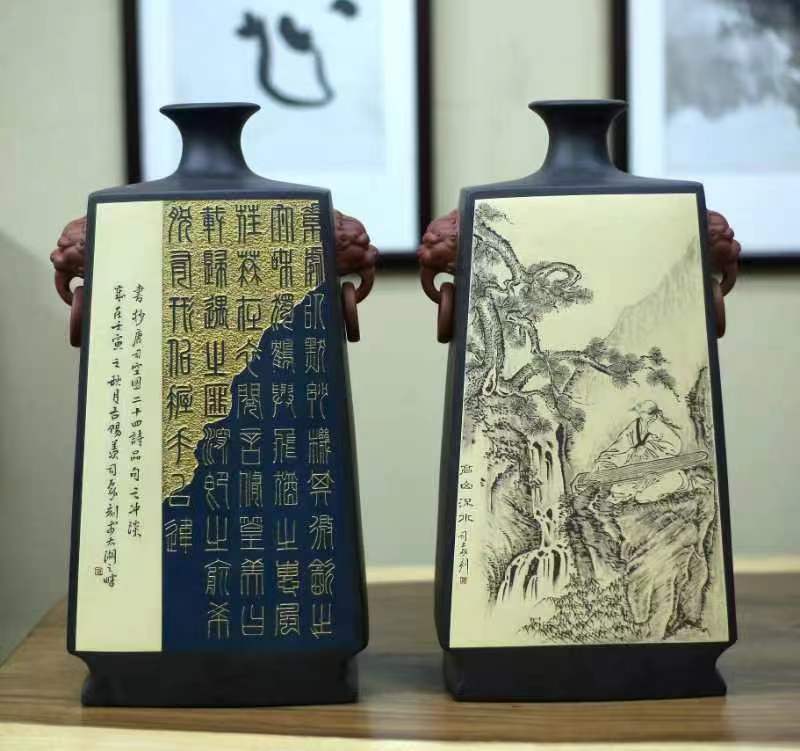 素處以默妙機其微飲之
太和獨鶴與飛猶之惠風
荏苒在衣閱音修篁美曰
載歸遇之匪深即之愈希
脫有形似握手已違
書抄唐司空圖二十四詩品句之冲淡
歲在壬寅之秋月古陽羨司磊刻於太湖之畔
高山流水
司磊刻